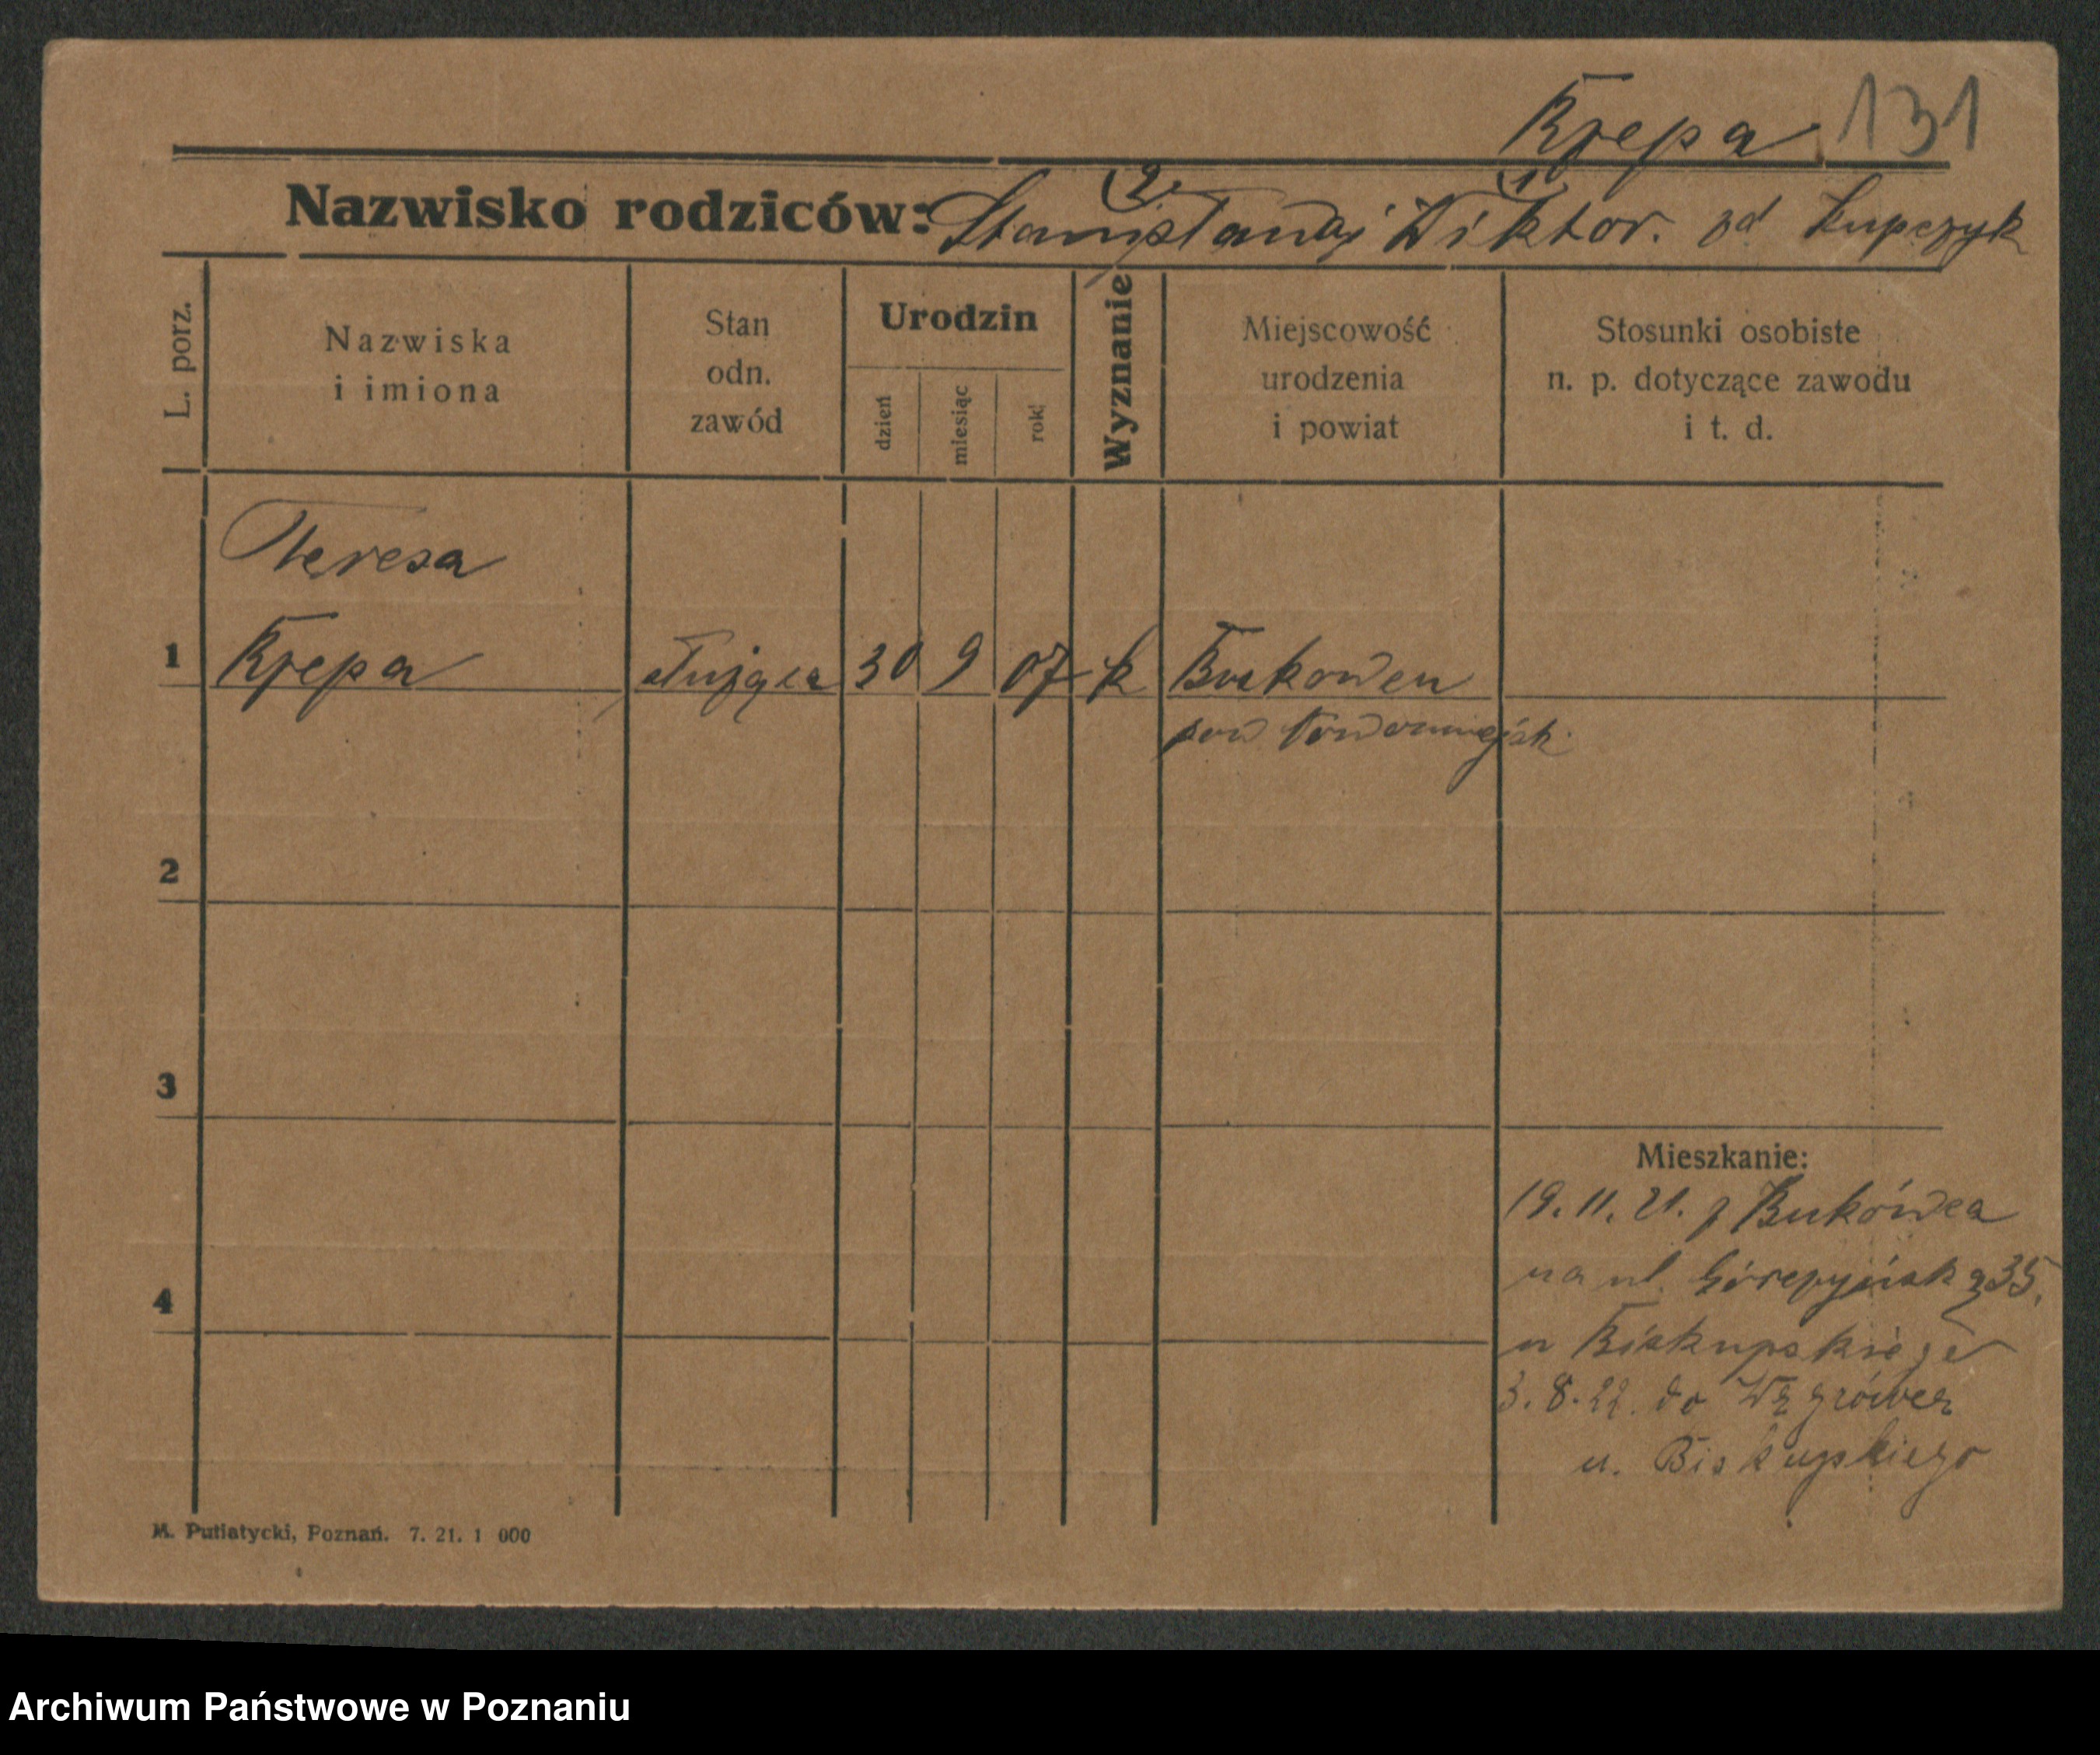 Krzepa 131
Nazwisko rodziców: Stanisława i Wiktor. zd Kupczyk
2 1
L. porz.
Nazwiska
i imiona
Stan
odn.
zawód
Urodzin
dzień
miesiąc
rok
Wyznanie
Miejscowość
urodzenia
i powiat
Stosunki osobiste
n. p. dotyczące zawodu
i t. d.
Teresa
1 Krzepa służąca 30 9 07 k Bukowen
pow
2
3
Mieszkanie:
19. 11. 21. z Bukówca
na ul. 35.
4
u Biskupskiego
3. 8. 22. do
u. Biskupskiego
M. Putiatycki, Poznań. 7. 21. 1 000
Archiwum Państwowe w Poznaniu